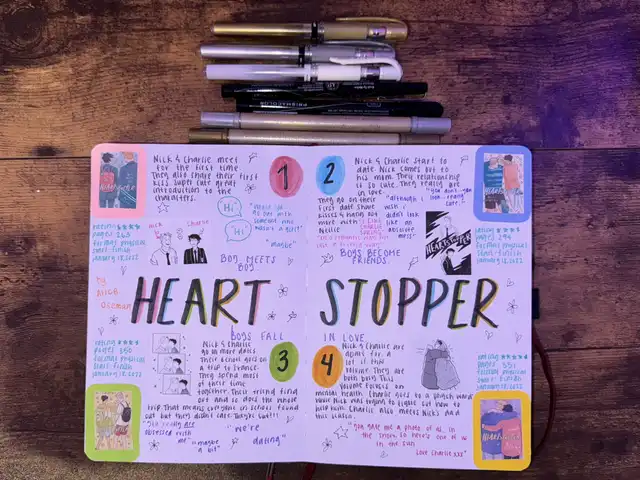 PRISMACOLOR
Nick & Charlie meet
for the first time
They also share their first
kiss. Super cute great
introduction to the
characters.
1
"Hi"
"Hi"
"would you
go out with
someone who
wasn't a girl?"
"maybe"
Nick
Charlie
BOY MEETS
BOY
rating
pages 263
format physical
start-finish
january 18, 2022
by
Alice
Oseman
2
Nick & Charlie start to
date. Nick comes out to
his mom. Their relationship
is so cute. They really are
in love.
They go on their
first date share
kisses & hang out
more with
Nellie
"although I
wish I
didn't look
like an
absolute
mess"
BOYS BECOME
FRIENDS
HEARTSTOPPER
rating
pages 294
format physical
start-finish
january 18, 2022
HEART STOPPER
BOYS FALL IN LOVE
rating
pages 350
format physical
start-finish
january 18, 2022
Nick & Charlie
go on more dates
Their school goes on
a trip to France.
They spend most
of their time
together. Their friend find
out and so does the whole
trip. That means everyone in school found
out but they didn't care. Boy's out!!!
3
"I'm really are
obsessed with
me"
"maybe
a bit"
"We're
dating"
4
Nick & Charlie are
apart for a
bit in this
volume. They are
both
Volume focuses on
mental health. Charlie goes to a psych ward
while Nick was trying to figure out how to
help him. Charlie also meets Nick's dad
this
"you gave me a photo of us in
the snow so here's one of us
in the sun
Love Charlie xxx"
rating
pages 351
format physical
start-finish
january 18, 2022